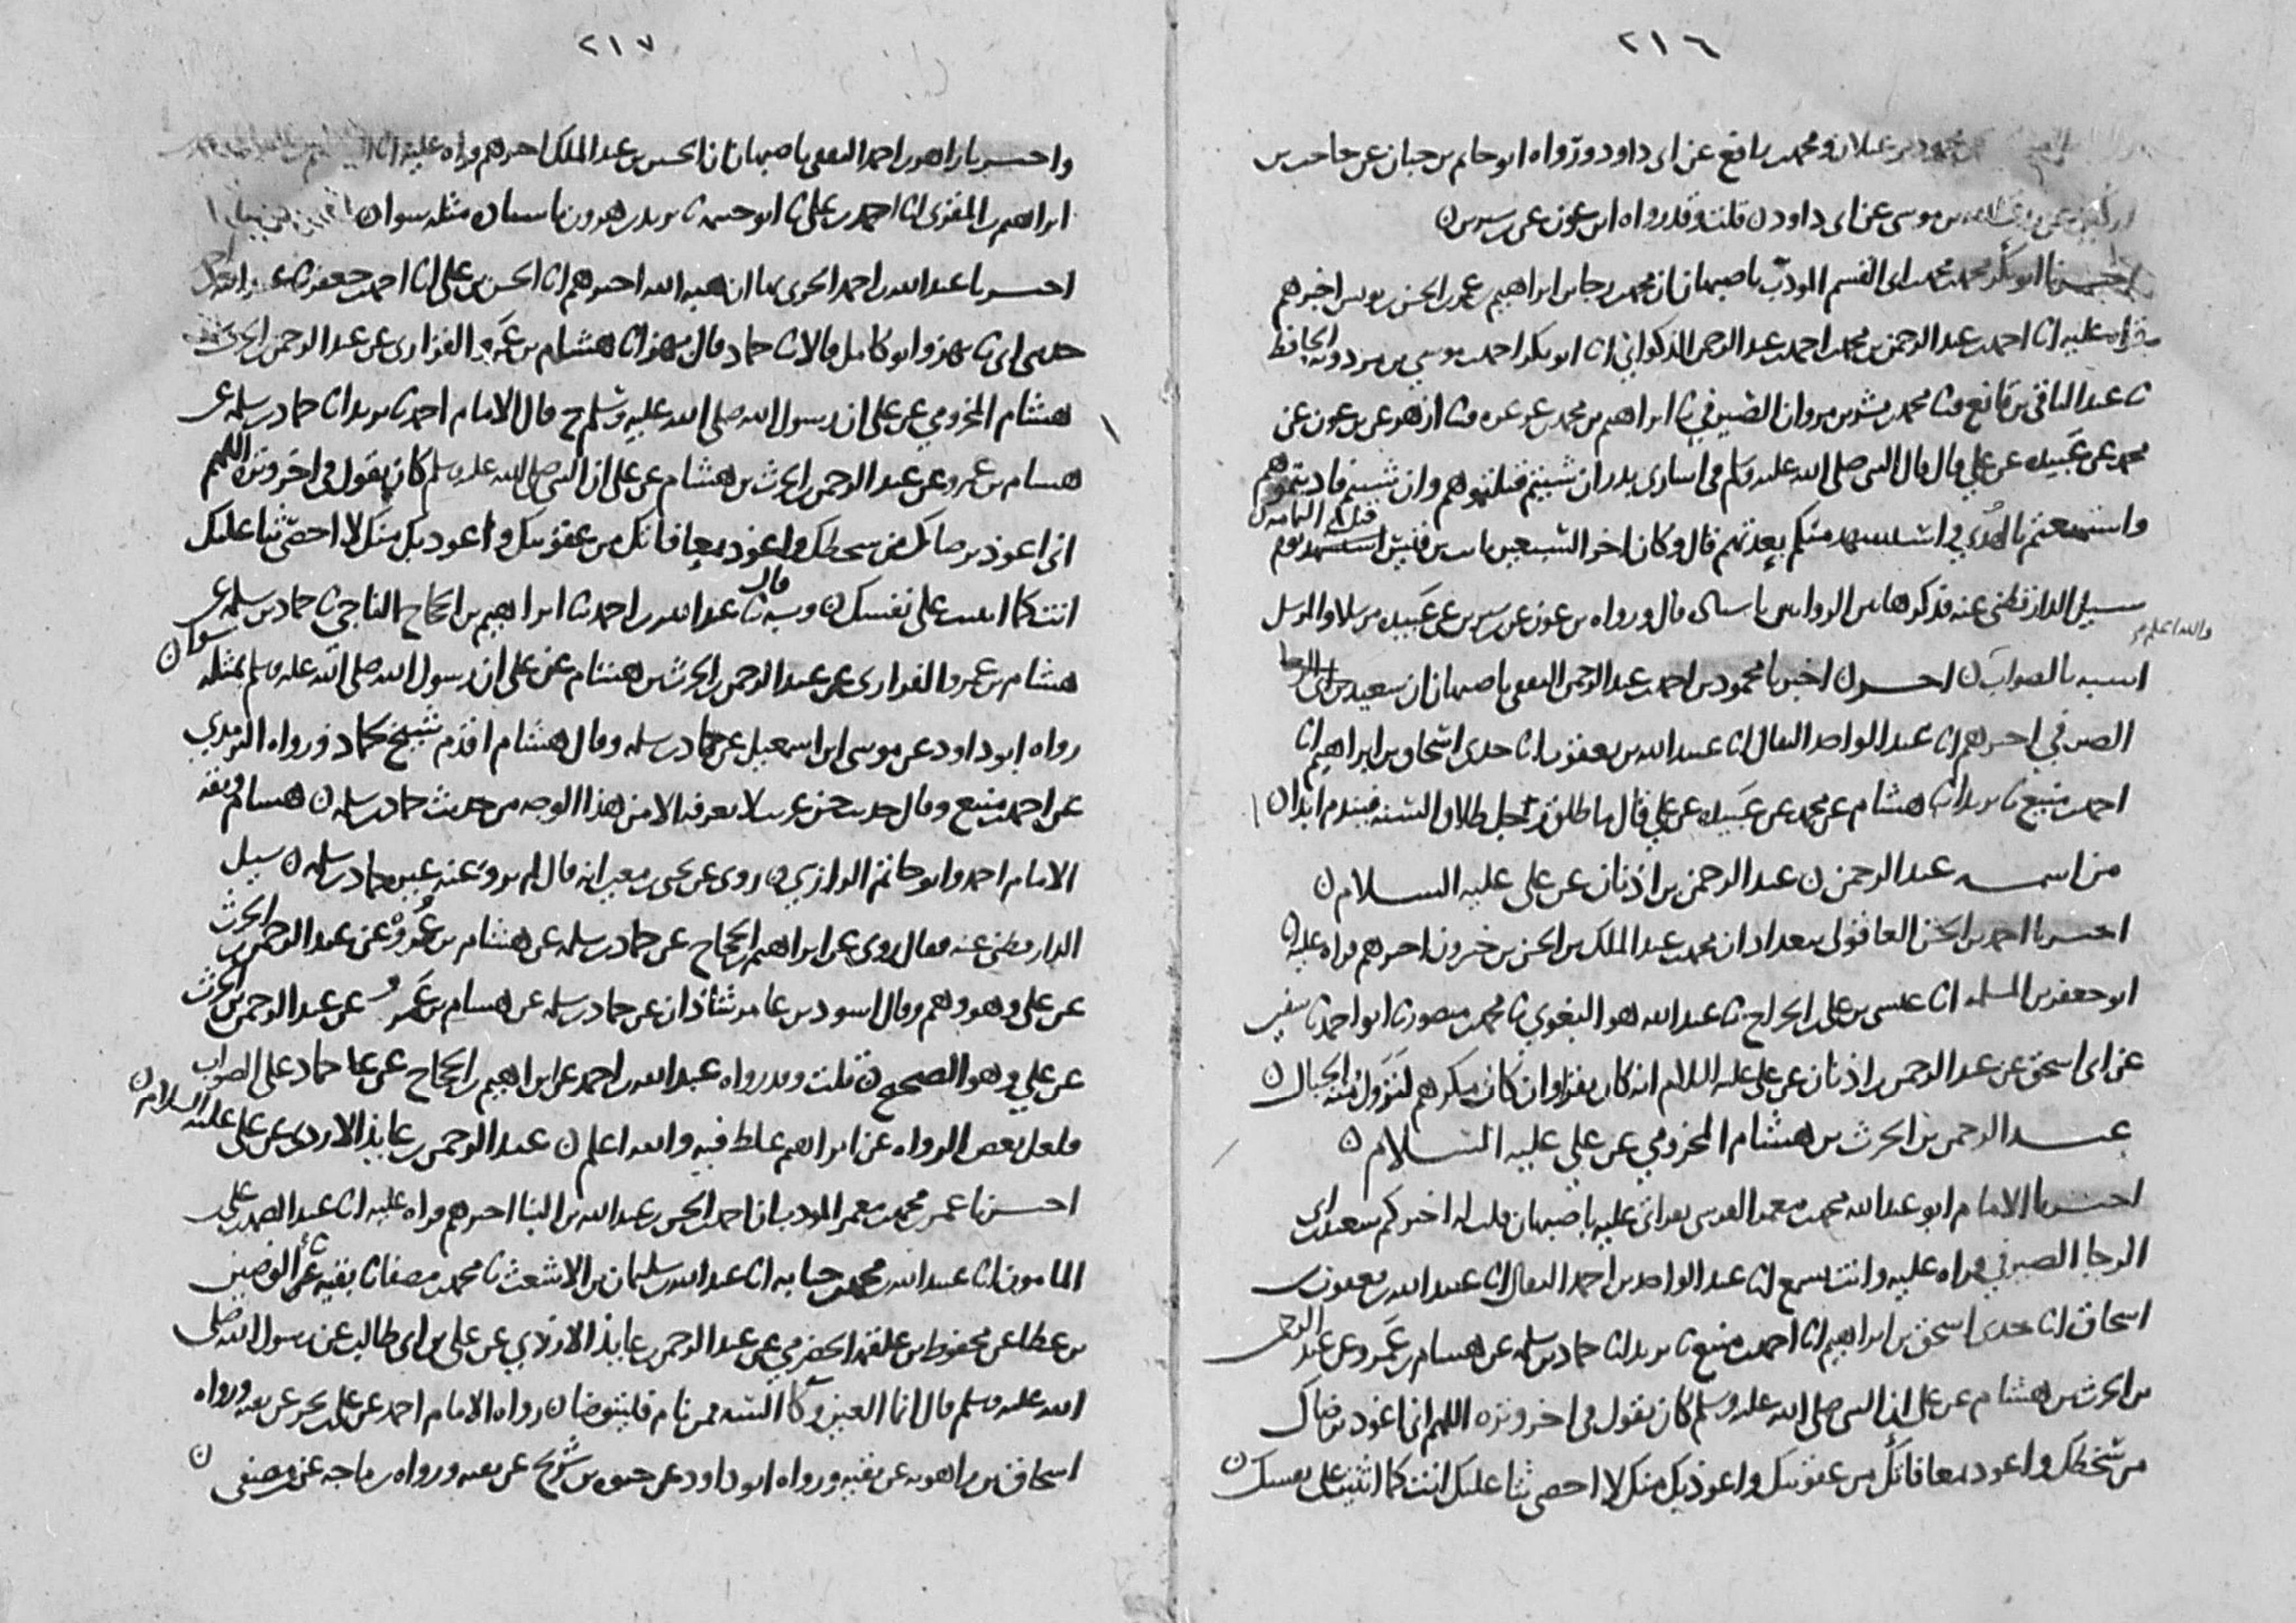 ٢١٦
محمود بن غيلان ومحمد بن رافع عن ابى داود ورواه ابو حاتم بن حبان عن حاجب بن
بن موسى عن ابى داود ن قلت وقد رواه ابن عون عن سيرين ن
اخبرنا ابو بكر محمد بن محمد بن ابى القسم المودب باصبهان ان محمد بن رجا بن ابراهيم بن عمر بن الحسن بن يونس اخبرهم
قراه عليه انا احمد بن عبد الرحمن بن محمد بن احمد بن عبد الرحمن الذكواني انا ابو بكر احمد بن موسى بن مردويه الحافظ
نا عبد الباقي بن قانع ونا محمد بن بشر بن مروان الصيرفي نا ابراهيم بن محمد بن عرعره ونا ازهر عن بن عون عن
محمد عن عبيده عن علي قال قال النبي صلى الله عليه وسلم في اسارى بدر ان شيتم قتلتموهم وان شيتم فاديتموهم
واستمتعتم بالفدي واستشهد منكم بعدتهم قال وكان اخر السبعين ثابت بن قيس استشهد يوم
قتل اليمامه ن
سيل الدارقطني عنه فذكر ها من الرواس باسناده قال ورواه بن عون عن سيرين عن عبيده مرسلا والمرسل
والله اعلم
اشبه بالصواب ن اخر ن اخبرنا محمود بن احمد بن عبد الرحمن الثقفى باصبهان ان سعيد بن ابى الرجا
الصيرفي اخبرهم انا عبد الواحد البقال انا عبيد الله بن يعقوب انا جدى اسحاق بن ابراهيم انا
احمد بن منيع نا يزيد انا هشام عن محمد عن عبيده عن علي قال ما طلق رجل طلاق السنه فيندم ابدا ن
من اسمه عبد الرحمن ن عبد الرحمن بن اذنان عن على عليه السلام ن
اخبرنا احمد بن الحسن العاقولى ببغداد ان محمد بن عبد الملك بن الحسن بن خيرون اخبرهم قراه عليه انا
ابو جعفر بن المسلمه انا عيسى بن على بن الجراح نا عبد الله هو البغوي نا محمد بن منصور نا ابو احمد نا سفين
عن ابى اسحق عن عبد الرحمن بن اذنان عن على عليه السلام انه كان يقرا وان كان مكرهم لتزول منه الجبال ن
عبد الرحمن بن الحرث بن هشام المخزومي عن علي عليه السلام ن
اخبرنا الامام ابو عبد الله محمد بن معمر القرشى بقراتى عليه باصبهان قلت له اخبركم سعيد بن ابى
الرجا الصيرفي قراه عليه وانت تسمع انا عبد الواحد بن احمد البقال انا عبيد الله بن يعقوب بن
اسحاق انا جدى اسحق بن ابراهيم انا احمد بن منيع نا يزيد انا حماد بن سلمه عن هشام بن عمرو عن عبد الرحمن
بن الحرث بن هشام عن على ان النبى صلى الله عليه وسلم كان يقول فى اخر وتره اللهم انى اعوذ برضاك
من سخطك واعوذ بمعافاتك من عقوبتك واعوذ بك منك لا احصى ثنا عليك انت كما اثنيت على نفسك ن
٢١٧
واخبرنا زاهر بن احمد الثقفى باصبهان ان الحسين بن عبد الملك اخبرهم قراه عليه انا
ابراهيم بن المقرى انا احمد بن على نا ابو خيثمه نا يزيد بن هرون باسناده مثله سوا ن
اخبرنا عبد الله بن احمد الحربى بها ان هبه الله اخبرهم انا الحسن بن على انا احمد بن جعفر نا عبد الله بن احمد
حدثنى ابى نا بهز وابو كامل قالا نا حماد قال بهز انا هشام بن عمرو الفزارى عن عبد الرحمن بن الحرث بن
هشام المخزومي عن على ان رسول الله صلى الله عليه وسلم ح قال الامام احمد نا يزيد انا حماد بن سلمه عن
هشام بن عمرو عن عبد الرحمن بن الحرث بن هشام عن على ان النبى صلى الله عليه وسلم كان يقول فى اخر وتره اللهم
انى اعوذ برضاك من سخطك واعوذ بمعافاتك من عقوبتك واعوذ بك منك لا احصى ثنا عليك
انت كما اثنيت على نفسك ن وبه قال نا عبد الله بن احمد نا ابراهيم بن الحجاج الناجي نا حماد بن سلمه عن
هشام بن عمرو الفزارى عن عبد الرحمن بن الحرث بن هشام عن على ان رسول الله صلى الله عليه وسلم بمثله سوا ن
رواه ابو داود عن موسى بن اسمعيل عن حماد بن سلمه وقال هشام اقدم شيخ لحماد ورواه الترمذي
عن احمد بن منيع وقال حديث حسن غريب لا يعرفه الا من هذا الوجه من حديث حماد بن سلمه ن هشام وثقه
الامام احمد وابو حاتم الرازي وروى عن يحيى بن معين انه قال لم يرو عنه غير حماد بن سلمه ن سيل
الدارقطنى عنه فقال روى عن ابراهيم بن الحجاج عن حماد بن سلمه عن هشام بن عروه عن عبد الرحمن بن الحرث
عن على وهو وهم وقال اسود بن عامر شاذان عن حماد بن سلمه عن هشام بن عمرو عن عبد الرحمن بن الحرث
عن علي وهو الصحيح ن قلت وقد رواه عبد الله بن احمد عن ابراهيم بن الحجاج عن حماد على الصواب
فلعل بعض الرواه عن ابراهيم غلط فيه والله اعلم ن عبد الرحمن بن عايذ الازدى عن على عليه السلام ن
اخبرنا عمر بن محمد بن معمر المودب ان احمد بن الحسن بن عبد الله بن البنا اخبرهم قراه عليه انا عبد الصمد بن على
المامون انا عبيد الله بن محمد بن حبابه انا عبد الله بن سليمان بن الاشعث نا محمد بن مصفا نا بقيه نا الوضين
بن عطا عن محفوظ بن علقمه الحضرمي عن عبد الرحمن بن عايذ الازدي عن على بن ابى طالب عن رسول الله صلى
الله عليه وسلم قال انما العين وكا السه فمن نام فليتوضا ن رواه الامام احمد عن على بن بحر عن بقيه ورواه
اسحاق بن راهويه عن بقيه ورواه ابو داود عن حيوه بن شريح عن بقيه ورواه بن ماجه عن بن مصفى ن